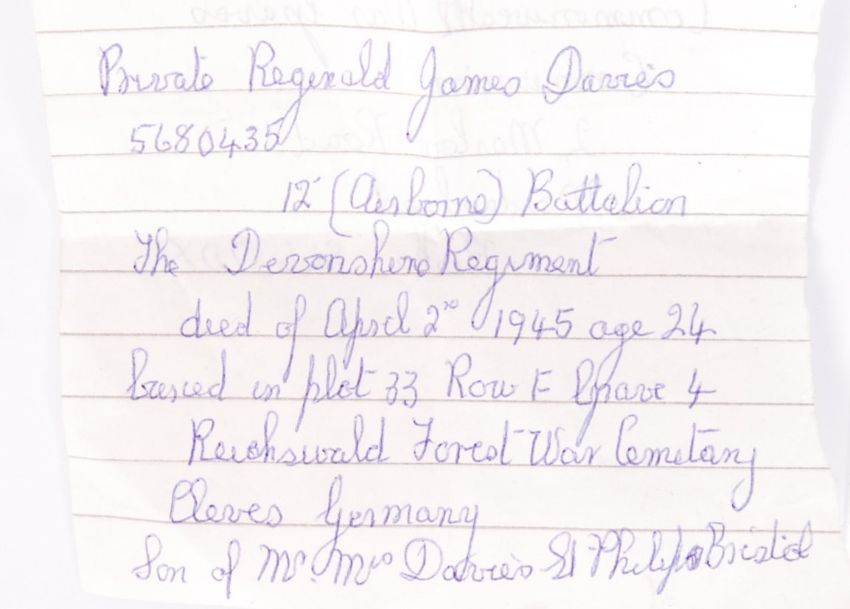 Private Reginald James Davies
5680435
12 (Airborne) Battalion
The Devonshire Regiment
died of April 2nd 1945 age 24
buried in plot 33 Row F Grave 4
Reichswald Forest War Cemetary
Cleves Germany
Son of Mr. Mrs Davies St Philips Bristol